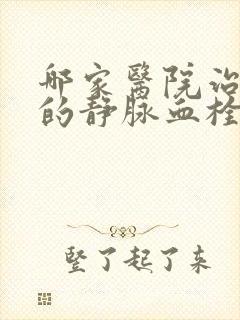 哪家醫院治
的靜脉血栓
竖了起了来